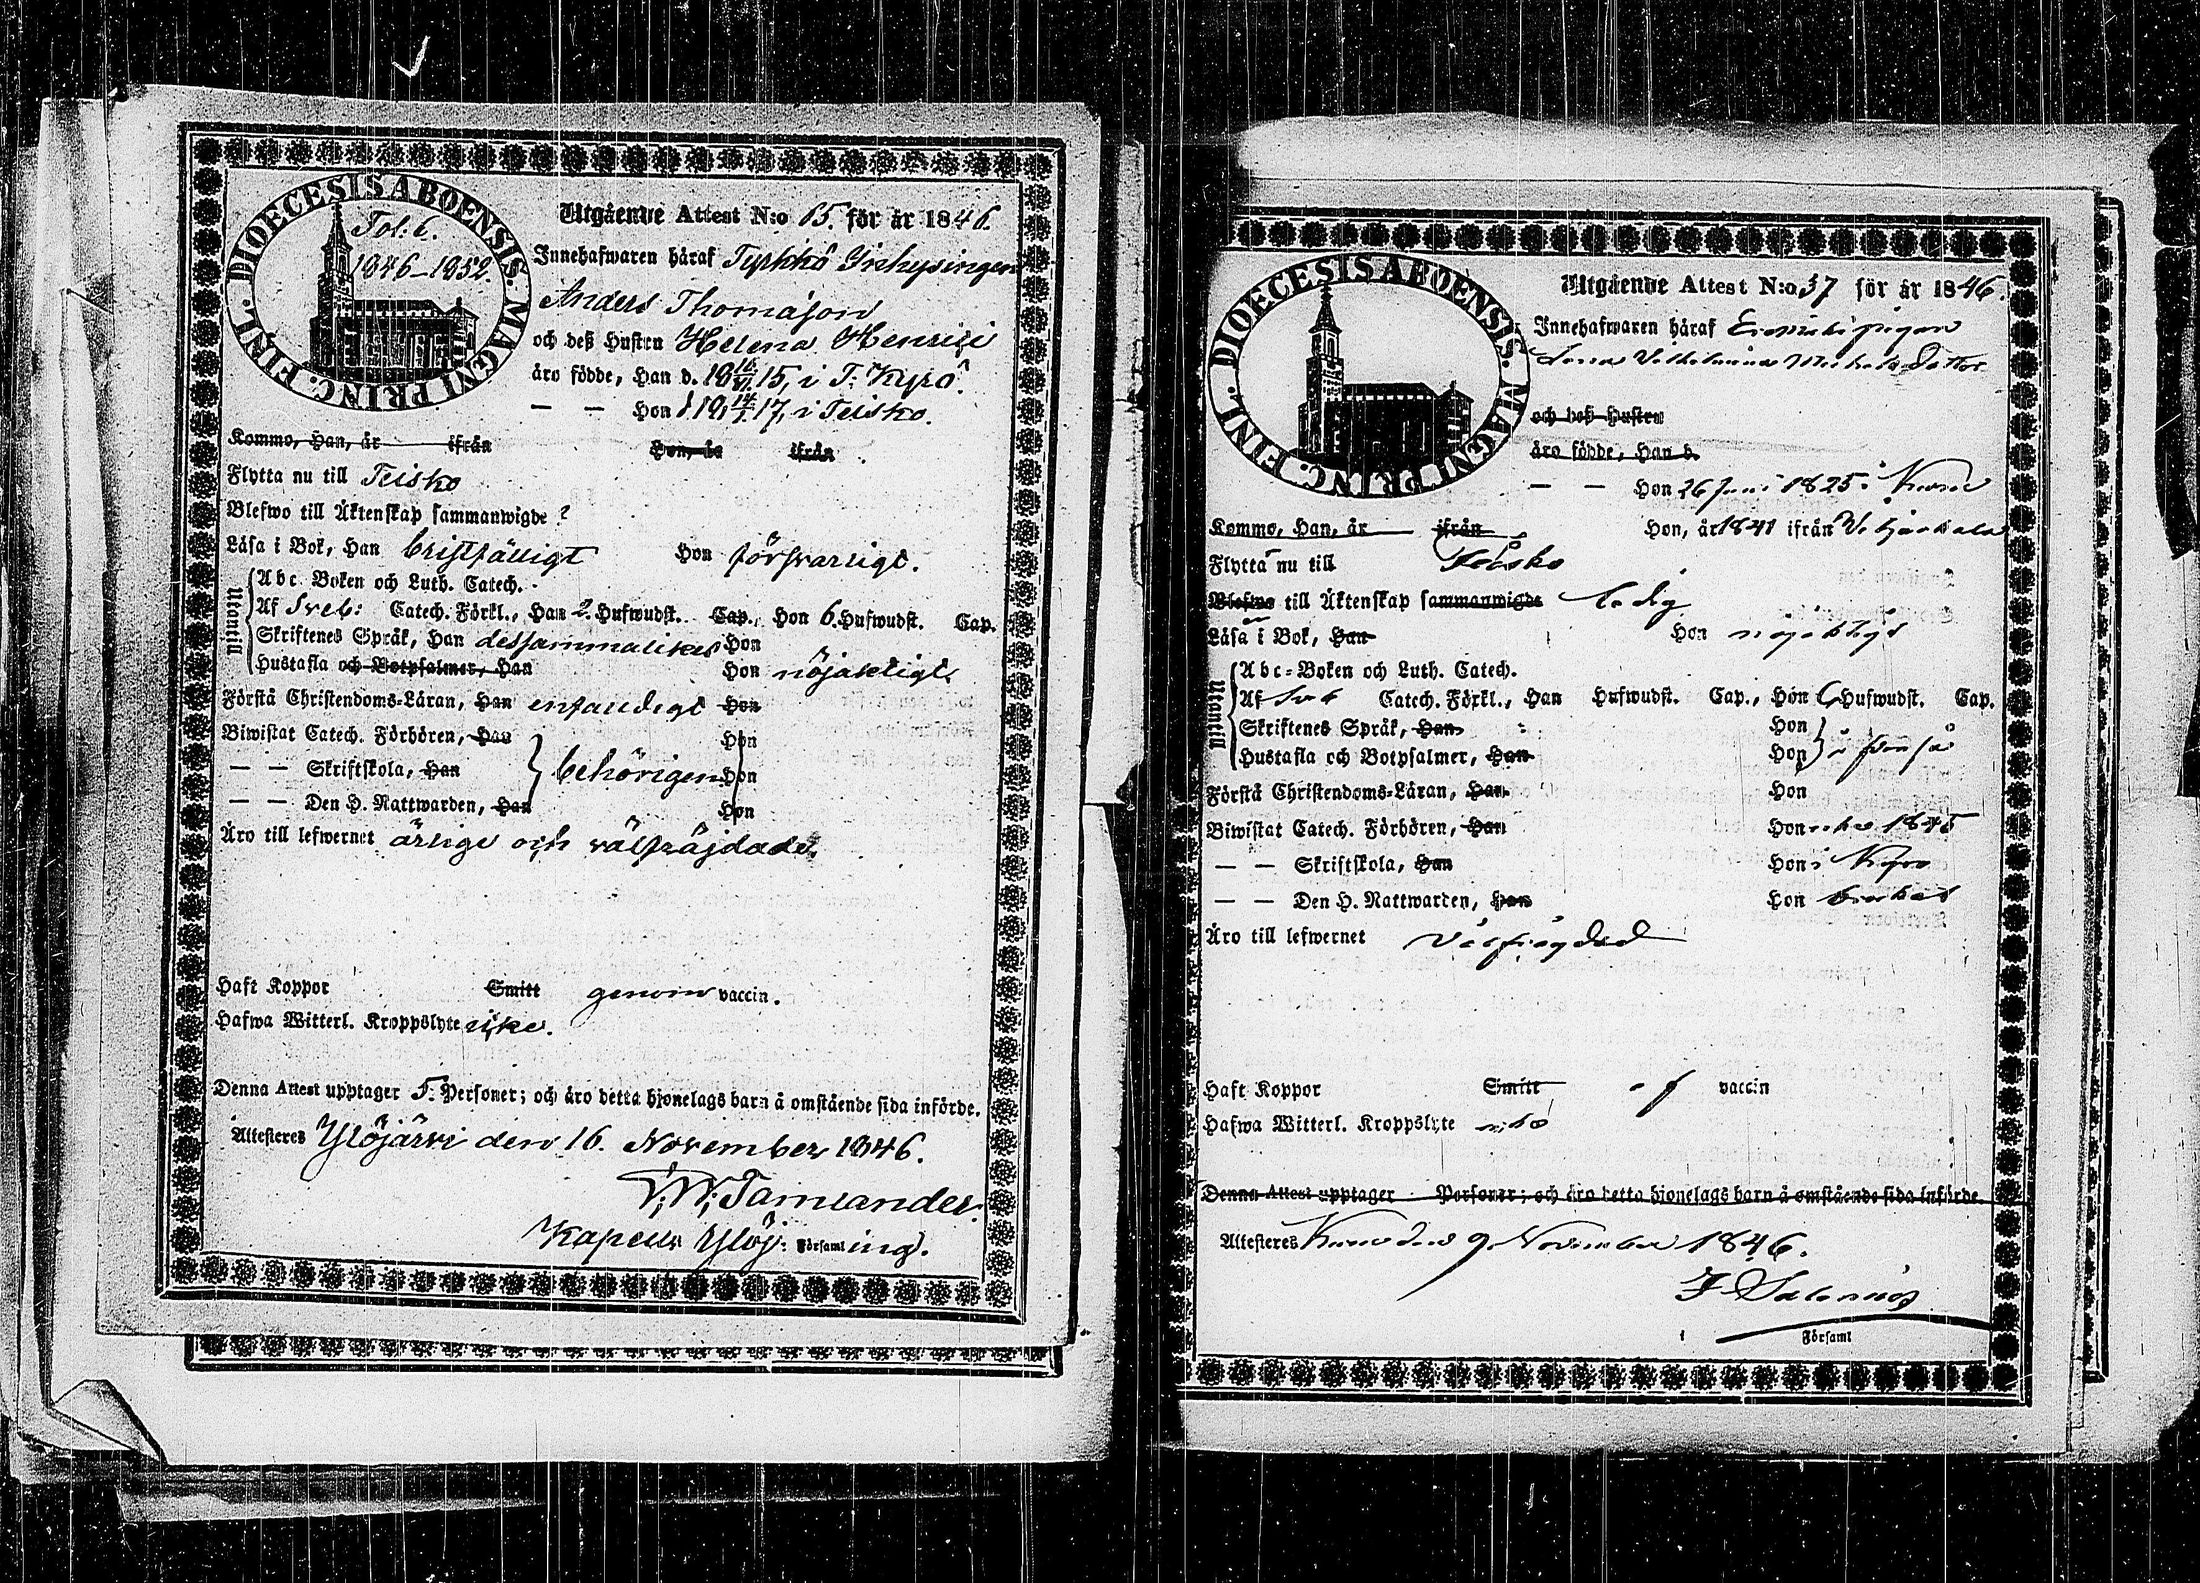 DIOECESIS ABOENSIS. MAGNI PRINC. FINL.
Fol: 6.
1846–1852.
Utgående Attest N:o 65. för år 1846.
Innehafwaren häraf Tyrkkö
Anders Thomason
och deß Hustru Helena Henrici
äro födde, Han d. 18 15, i T: Kyrö.
— — Hon d 18 17, i Teisko.
Kommo, Han, år ifrån Hon, år ifrån
Flytta nu till Teisko
Blefwo till Äktenskap sammanwigde ?
Läsa i Bok, Han bristfälligt Hon försvarligt.
Utantill
Abc-Boken och Luth. Catech.
Af Sveb: Catech. Förkl., Han 2. Hufwudst. Cap., Hon 6. Hufwudst. Cap.
Skriftenes Språk, Han dessammalikes Hon
Hustafla och Botpsalmer, Han Hon nöjaktigt
Förstå Christendoms-Läran, Han enfaldigt Hon
Biwistat Catech. Förhören, Han Hon
— — Skriftskola, Han behörigen Hon
— — Den H. Nattwarden, Han Hon
Äro till lefwernet ärlige och välfräjdade.
Haft Koppor Smitt genom vaccin.
Hafwa Witterl. Kroppslyte icke.
Denna Attest upptager 5. Personer; och äro detta hjonelags barn å omstående sida införde.
Attesteres Ylöjärvi den 16. November 1846.
Tamlander.
Kapell Ylöj: Församling.
DIOECESIS ABOENSIS. MAGNI PRINC. FINL.
Utgående Attest N:o 37 för år 1846.
Innehafwaren häraf
Vilhelmina Michelsdotter
och deß Hustru
äro födde, Han d.
— — Hon 26 Juni 1825 i Kuru
Kommo, Han, år ifrån Hon, år 1841 ifrån
Flytta nu till Teisko
Blefwo till Äktenskap sammanwigde ledig
Läsa i Bok, Han Hon nöjaktigt
Utantill
Abc-Boken och Luth. Catech.
Af Sveb Catech. Förkl., Han Hufwudst. Cap., Hon 6 Hufwudst. Cap.
Skriftenes Språk, Han Hon
Hustafla och Botpsalmer, Han Hon
Förstå Christendoms-Läran, Han Hon
Biwistat Catech. Förhören, Han Hon 1845
— — Skriftskola, Han Hon i
— — Den H. Nattwarden, Han Hon
Äro till lefwernet välfrägdad
Haft Koppor Smitt af vaccin
Hafwa Witterl. Kroppslyte
Denna Attest upptager Personer; och äro detta hjonelags barn å omstående sida införde.
Attesteres Kuru den 9 November 1846.
Församl